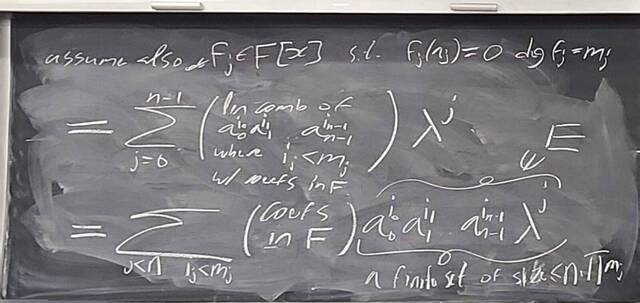 assume also F_j ∈ F[x] s.t. F_j(a_j)=0 deg F_j = m_j
= \sum_{j=0}^{n-1} ( lin comb of a_0^{i_0} a_1^{i_1} . a_{n-1}^{i_{n-1}} where i_j < m_j w/ coefs in F ) λ^j E
= \sum_{j<n i_j<m_j} ( coefs in F ) a_0^{i_0} a_1^{i_1} . a_{n-1}^{i_{n-1}} λ^j
a finite set of size ≤ n·∏ m_j